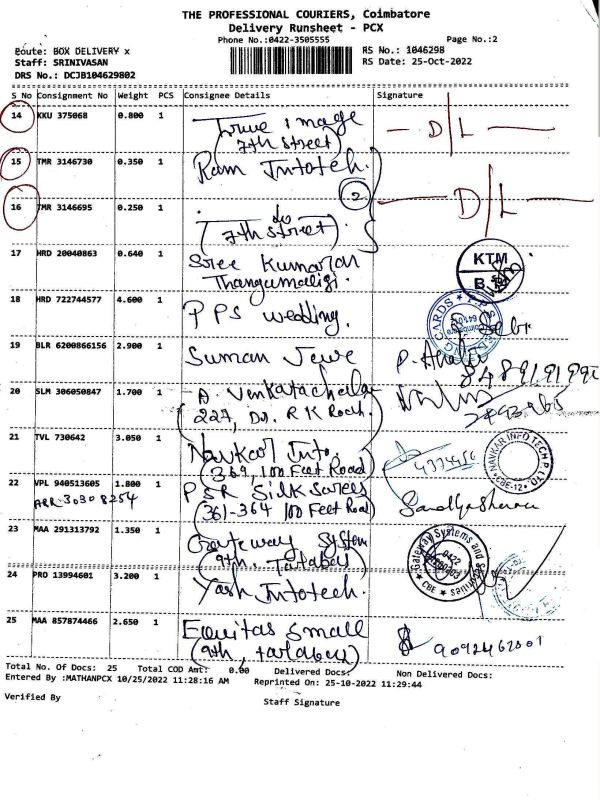 THE PROFESSIONAL COURIERS, Coimbatore
Delivery Runsheet - PCX
Phone No.:0422-3505555 Page No.:2
Route: BOX DELIVERY x RS No.: 1046298
Staff: SRINIVASAN RS Date: 25-Oct-2022
DRS No.: DCJB104629802
S No Consignment No Weight PCS Consignee Details Signature
14 KKU 375068 0.800 1 True image D/L
(7th street)
15 TMR 3146730 0.350 1 Ram Infoteh.
2
16 TMR 3146695 0.250 1 do D/L
(7th street)
17 HRD 20040863 0.640 1 Sree Kumaran KTM
Thangamaligi.
18 HRD 722744577 4.600 1 PPS wedding.
19 BLR 6200866156 2.900 1 Suman Jewe
20 SLM 306050847 1.700 1 A. Venkatachala
227, Dr. R K Road.
21 TVL 730642 3.050 1 Navkar Info. NAVKAR INFO TECH P LTD
(369, 100 Feet Road) CBE-12
22 VPL 940513605 1.800 1 PSR Silk Sarees
ARR-30308254 (361-364 100 Feet Road)
23 MAA 291313792 1.350 1 Gateway System Gateway Systems and Securities
(9th, Tatabad) 0422 CBE
24 PRO 13994601 3.200 1 Yash Infotech.
25 MAA 857874466 2.650 1 Equitas small 9092462001
(9th, tatabad)
Total No. Of Docs: 25 Total COD Amt: 0.00 Delivered Docs: Non Delivered Docs:
Entered By :MATHANPCX 10/25/2022 11:28:16 AM Reprinted On: 25-10-2022 11:29:44
Verified By Staff Signature